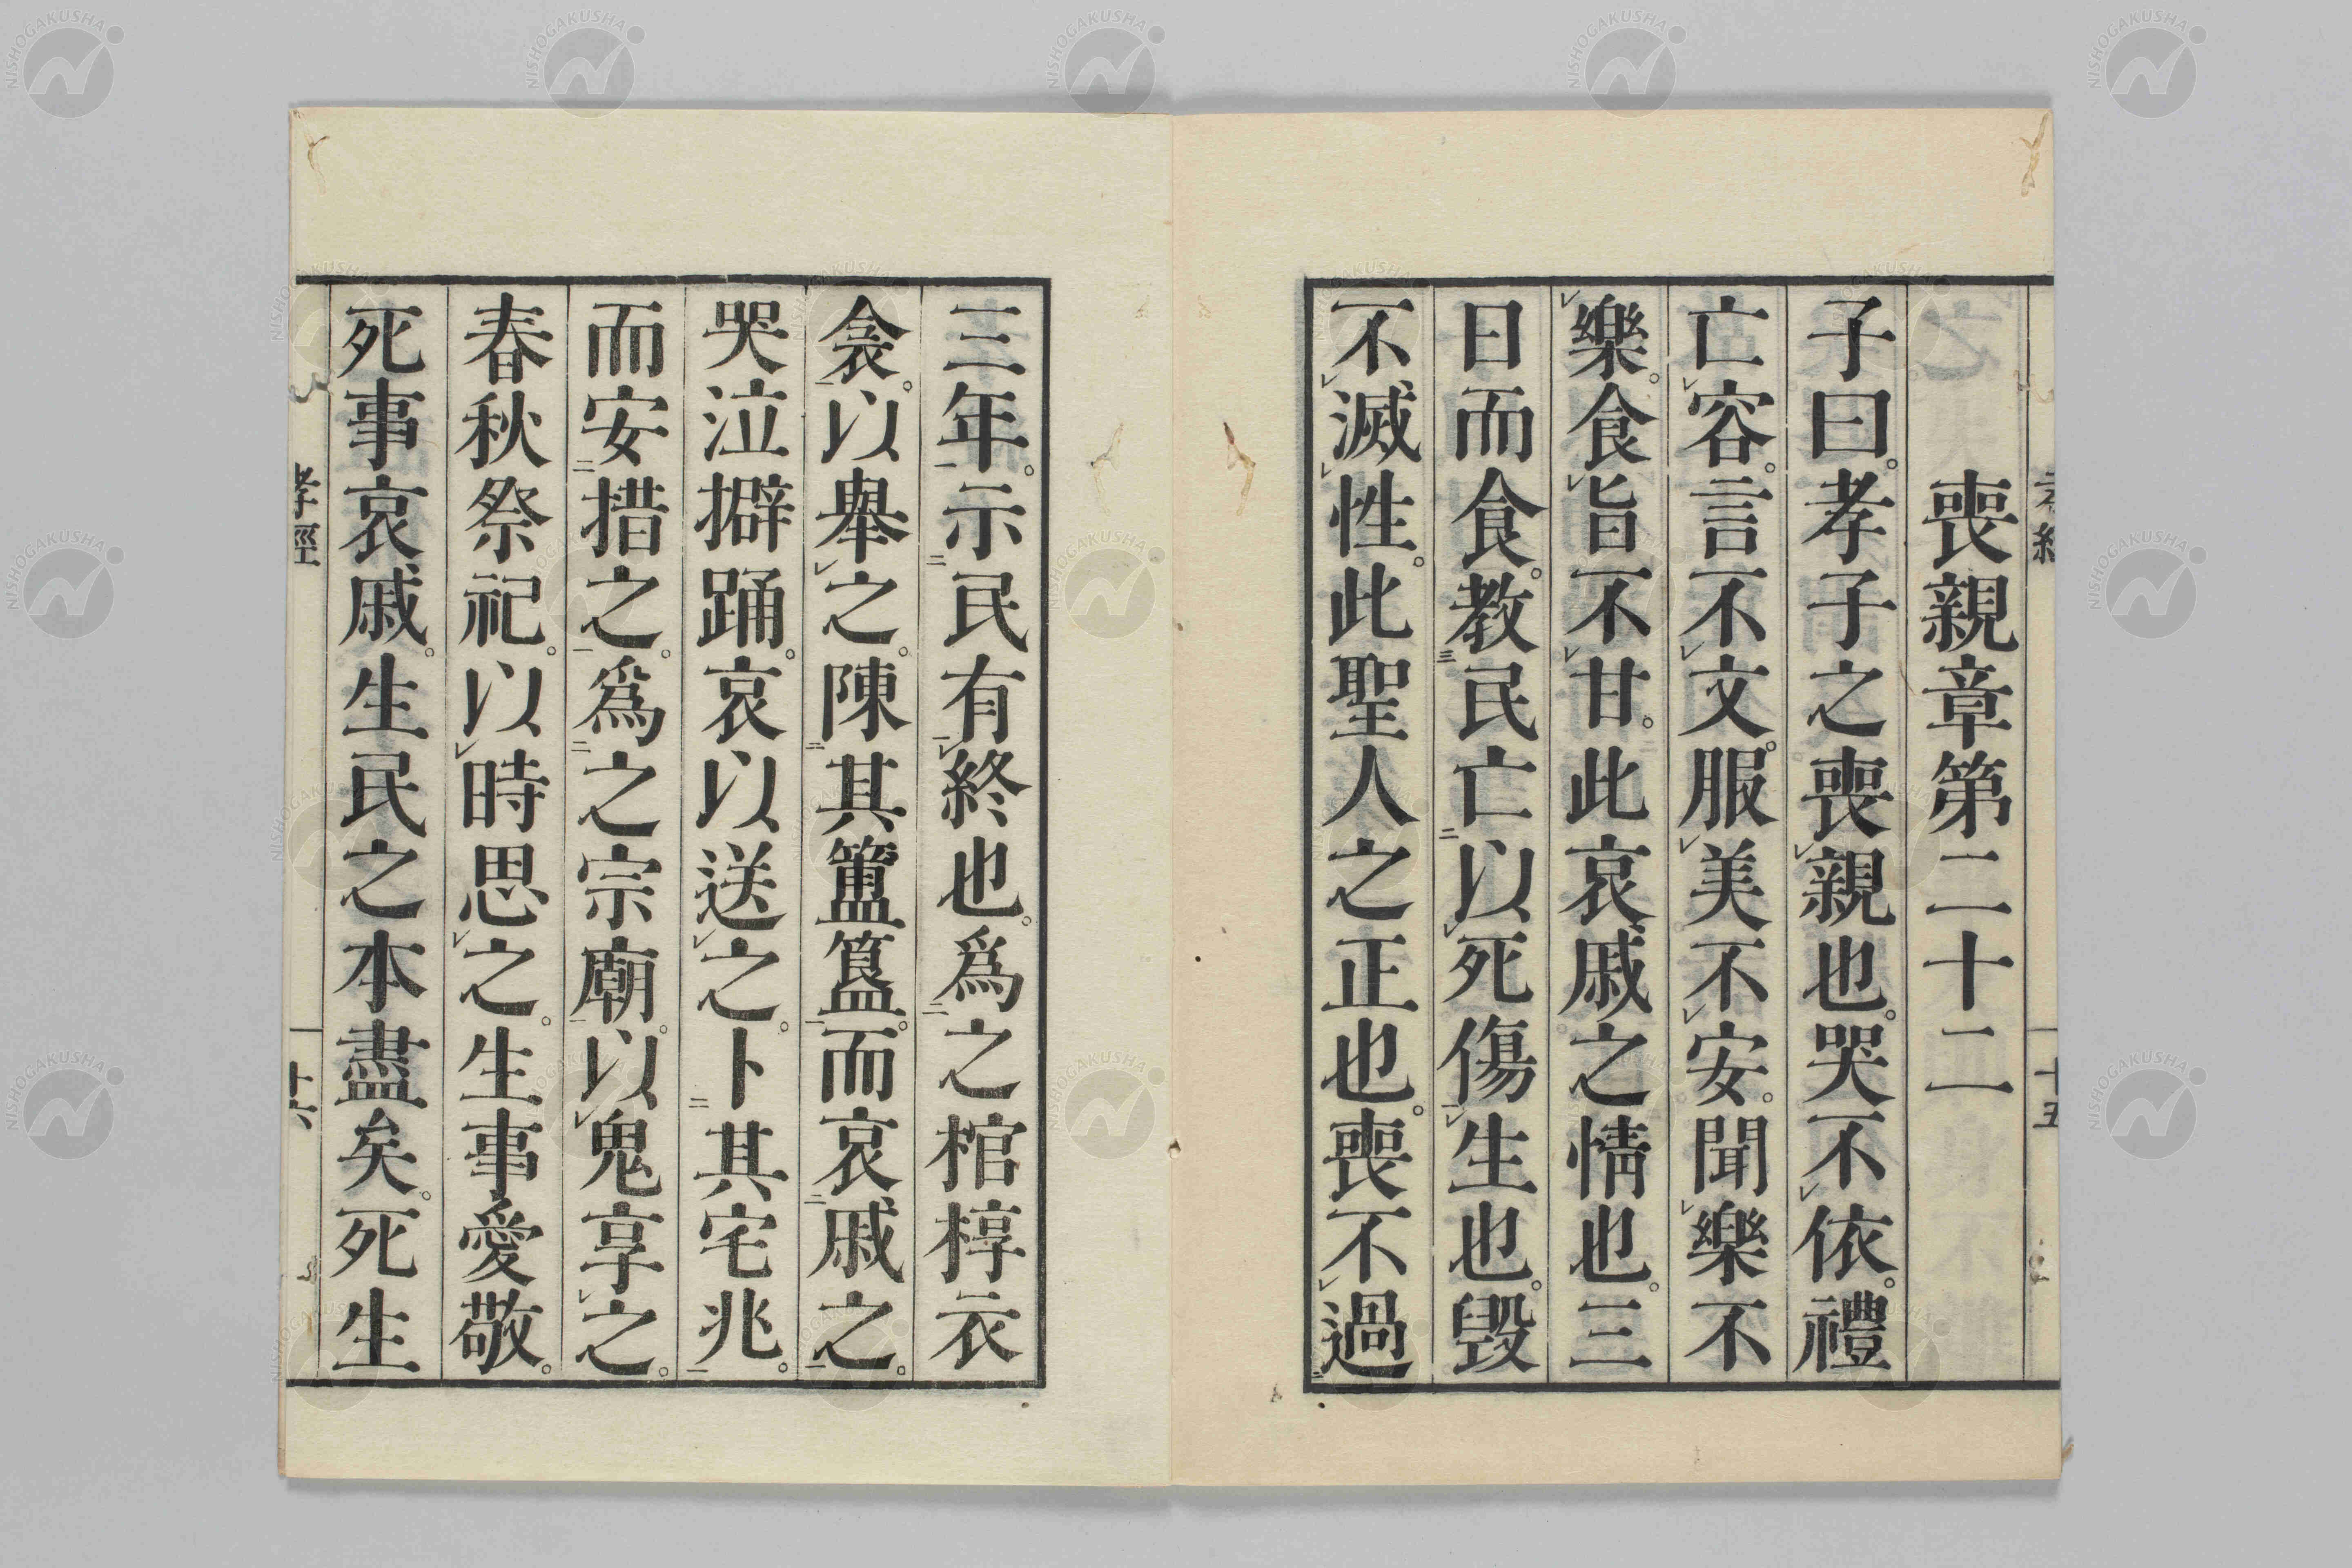 喪親章第二十二
子曰。孝子之喪親也。哭不依。禮
亡容。言不文。服美不安。聞樂不
樂。食旨不甘。此哀戚之情也。三
日而食。教民亡以死傷生也。毀
不滅性。此聖人之正也。喪不過
三年。示民有終也。爲之棺椁衣
衾。以舉之。陳其簠簋。而哀戚之。
哭泣擗踊。哀以送之。卜其宅兆。
而安措之。爲之宗廟。以鬼享之。
春秋祭祀。以時思之。生事愛敬。
死事哀戚。生民之本盡矣。死生
孝經
十六
十五
NISHOGAKUSHA